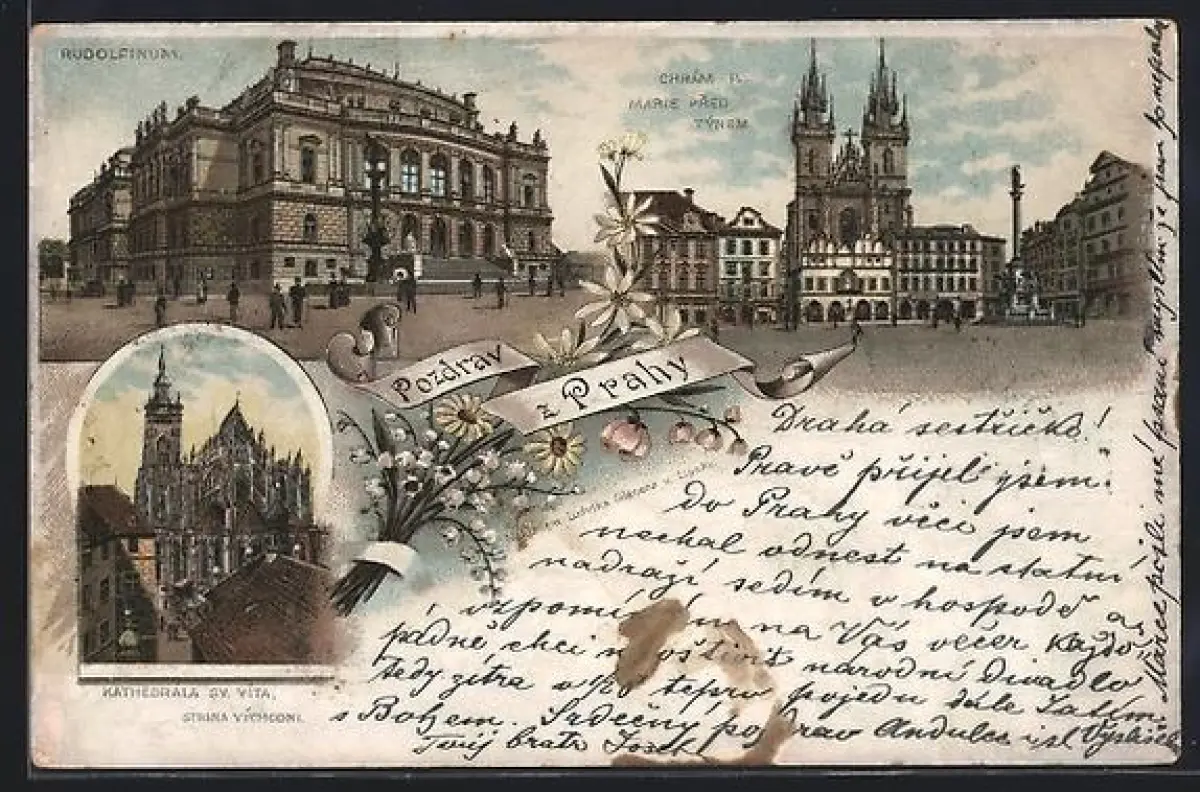 RUDOLFINUM.
CHRÁM P.
MARIE PŘED
TÝNEM
Pozdrav
z Prahy
KATHEDRALA SV. VÍTA.
STRANA VÝCHODNÍ.
Drahá sestřičko!
Pravě přijel jsem
do Prahy věci jsem
nechal odnest na statní
nadraží sedím v hospodě a
vzpomí na Vás večer každo
padně chci národní divadlo
tedy zítra v teprv pojedu dále Zatím
s Bohem. Srdečný pozdrav Andulce
Tvůj bratr Josek
Mařce pošli mé psaní myslím že jsem